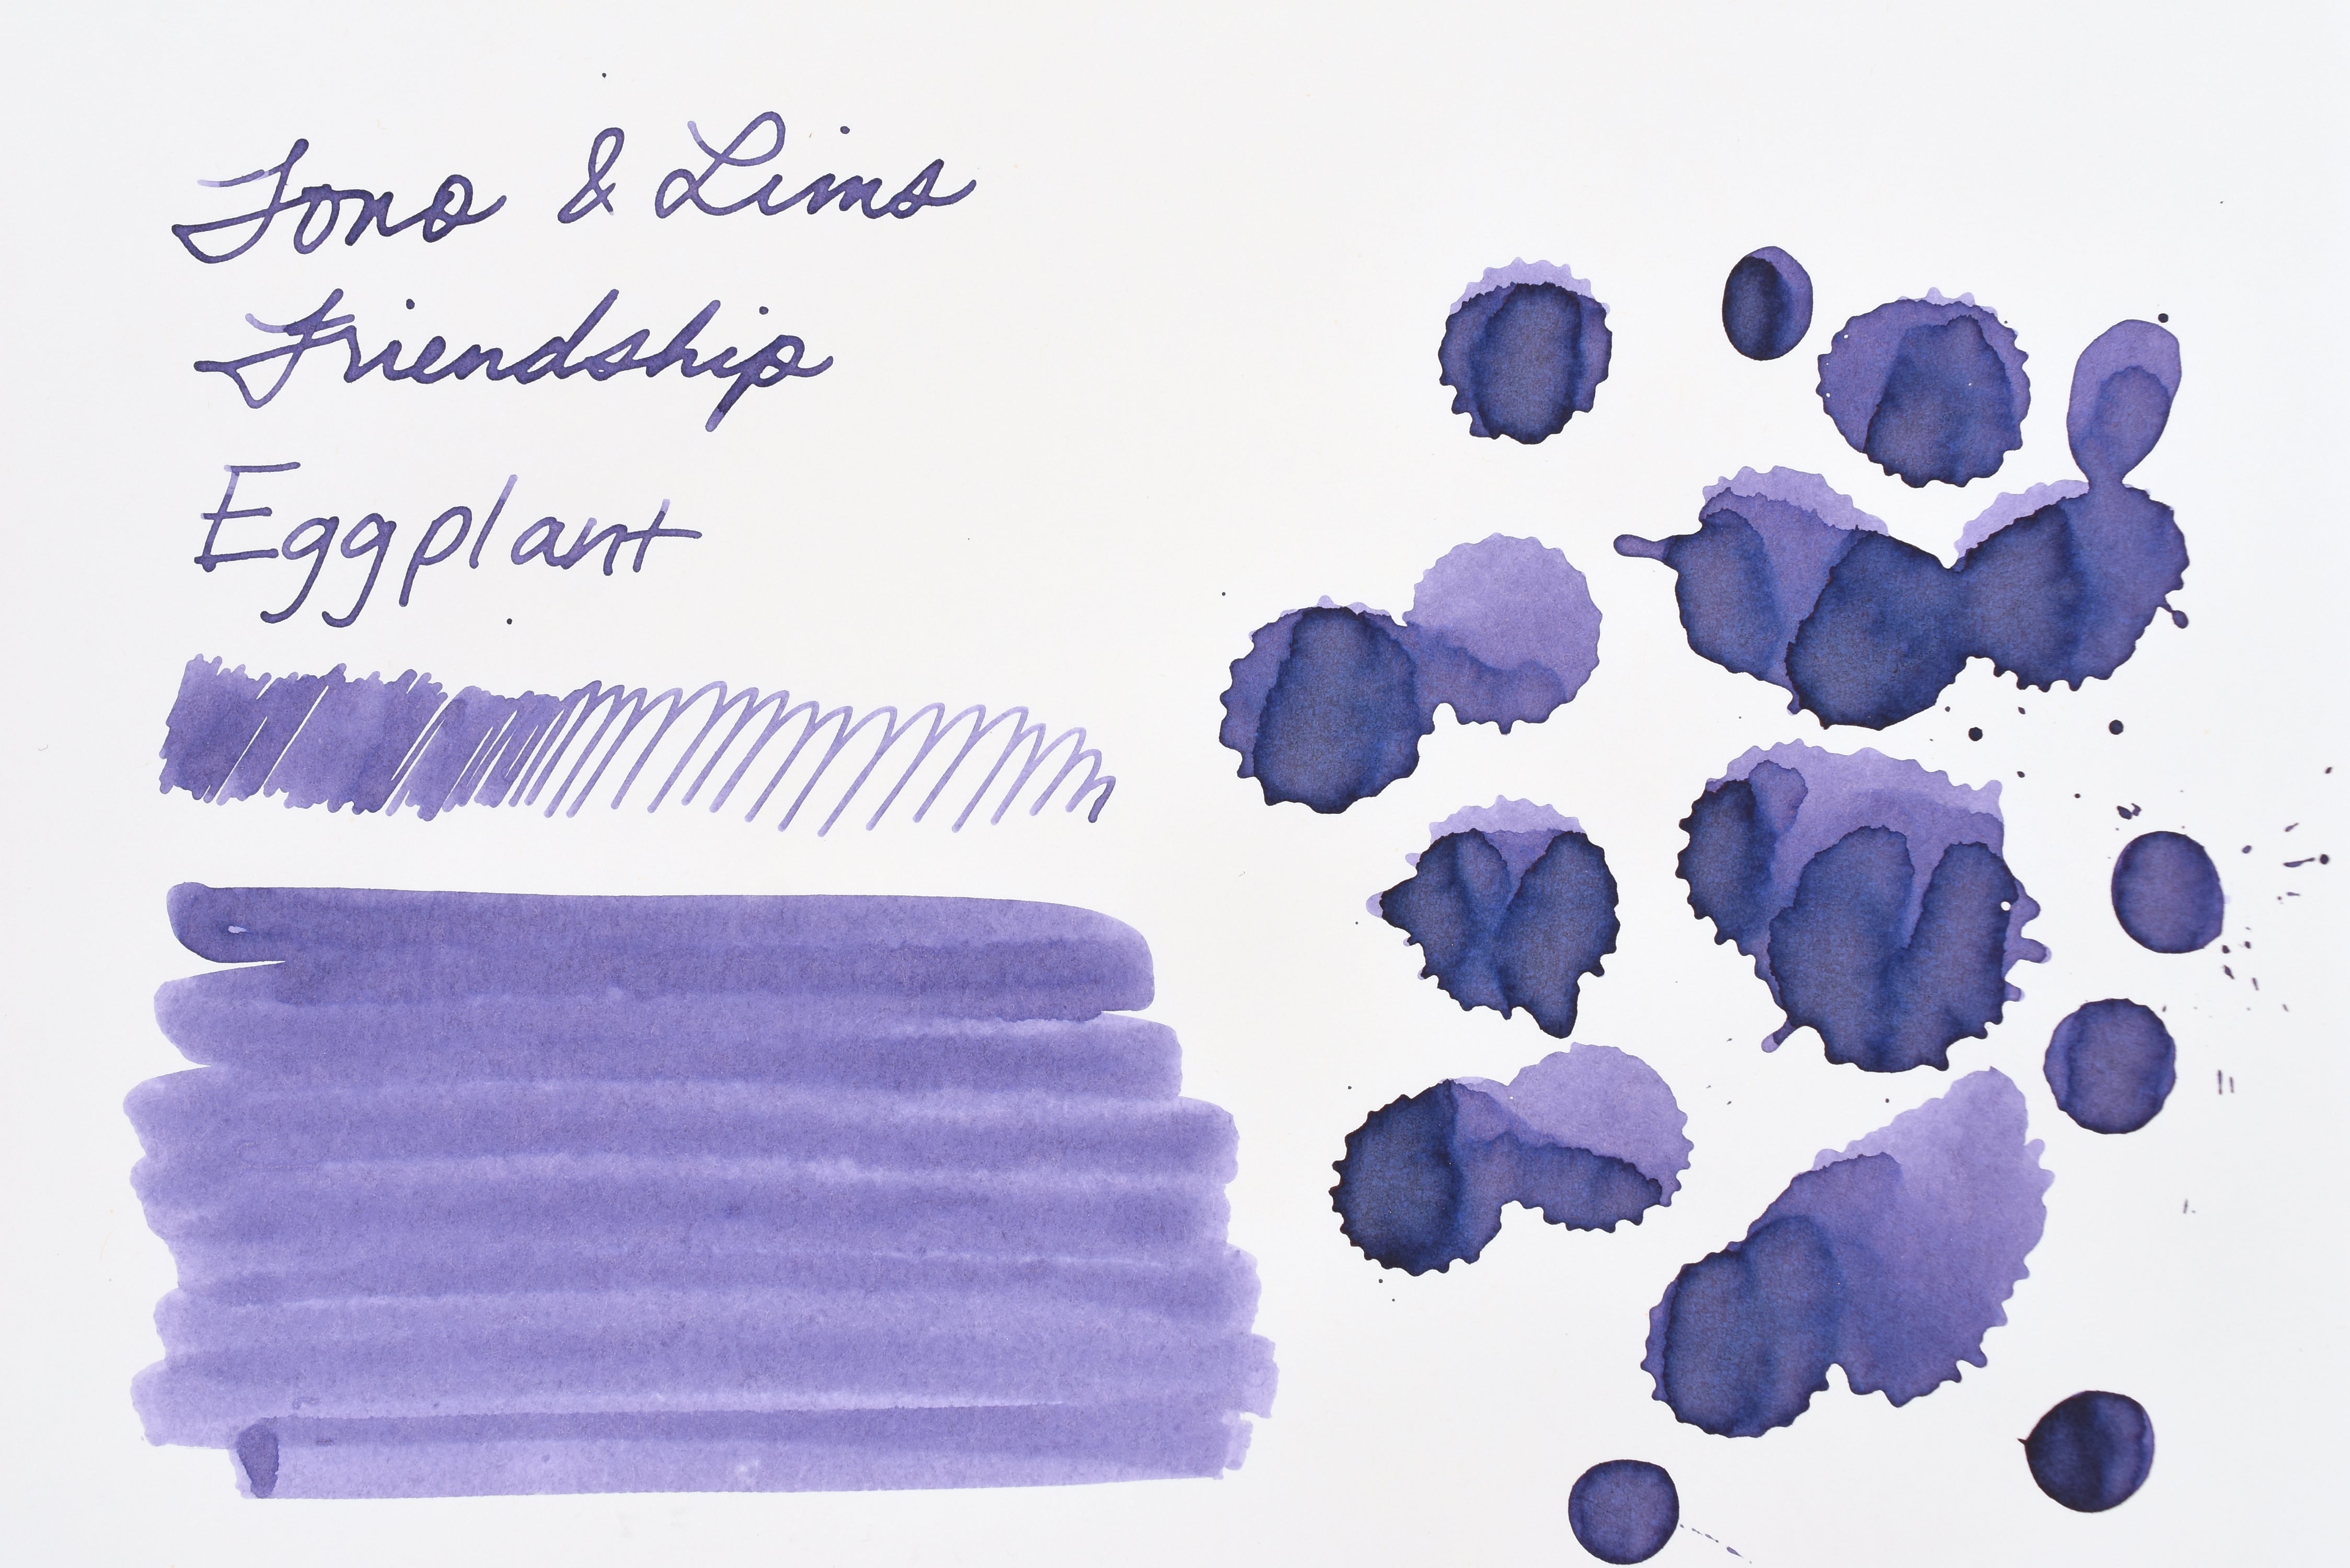 Tono & Lims
Friendship
Eggplant